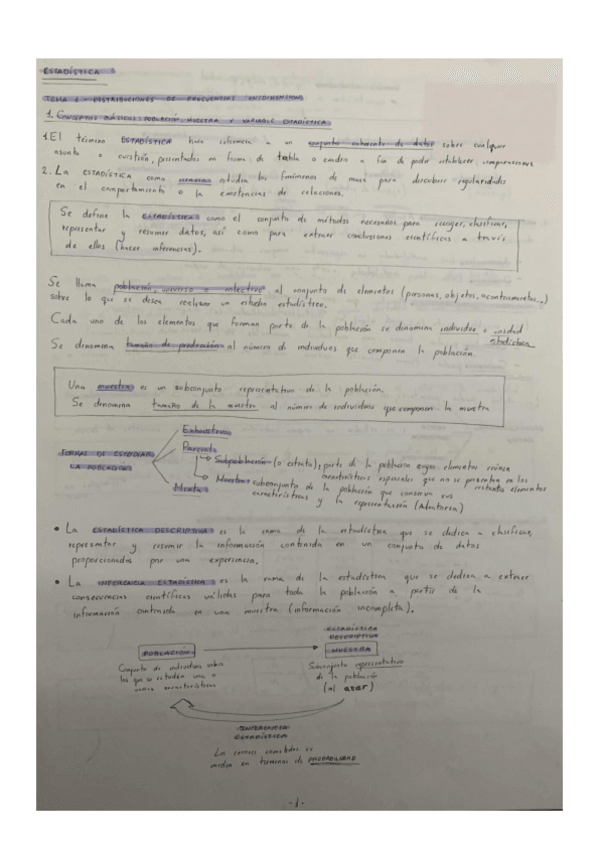 ESTADÍSTICA
TEMA 1 - DISTRIBUCIONES DE FRECUENCIAS UNIDIMENSIONAL
1. CONCEPTOS BÁSICOS: POBLACIÓN, MUESTRA Y VARIABLE ESTADÍSTICA
1. El término ESTADÍSTICA hace referencia a un conjunto coherente de datos sobre cualquier
asunto o cuestión, presentados en forma de tabla o cuadro a fin de poder establecer comparaciones
2. La ESTADÍSTICA como estudia los fenómenos de masa para descubrir regularidades
en el comportamiento o la existencias de relaciones.
Se define la ESTADÍSTICA como el conjunto de métodos necesarios para recoger, clasificar,
representar y resumir datos, así como para extraer conclusiones científicas a través
de ellos (hacer inferencias).
Se llama población, universo o colectivo al conjunto de elementos (personas, objetos, acontecimientos...)
sobre lo que se desea realizar un estudio estadístico.
Cada uno de los elementos que forman parte de la población se denomina individuo o unidad
estadística
Se denomina tamaño de al número de individuos que componen la población.
Una muestra es un subconjunto representativo de la población.
Se denomina tamaño de la muestra al número de individuos que componen la muestra
FORMAS DE ESTUDIAR
LA POBLACIÓN
Exhaustiva
Parcial
Subpoblación (o estrato): parte de la población cuyos elementos reúnen
características especiales que no se presentan en los
restantes elementos
Muestra: subconjunto de la población que conserva sus
características y la representación (Aleatoria)
Mixta
• La ESTADÍSTICA DESCRIPTIVA es la rama de la estadística que se dedica a clasificar,
representar y resumir la información contenida en un conjunto de datos
proporcionados por una experiencia.
• La INFERENCIA ESTADÍSTICA es la rama de la estadística que se dedica a extraer
consecuencias científicas válidas para toda la población a partir de la
información contenida en una muestra (información incompleta).
ESTADÍSTICA
DESCRIPTIVA
POBLACIÓN
MUESTRA
Conjunto de individuos sobre
los que se estudian una o
varias características
Subconjunto representativo
de la población
(al azar)
INFERENCIA
ESTADÍSTICA
Los errores cometidos se
miden en términos de PROBABILIDAD
-1-